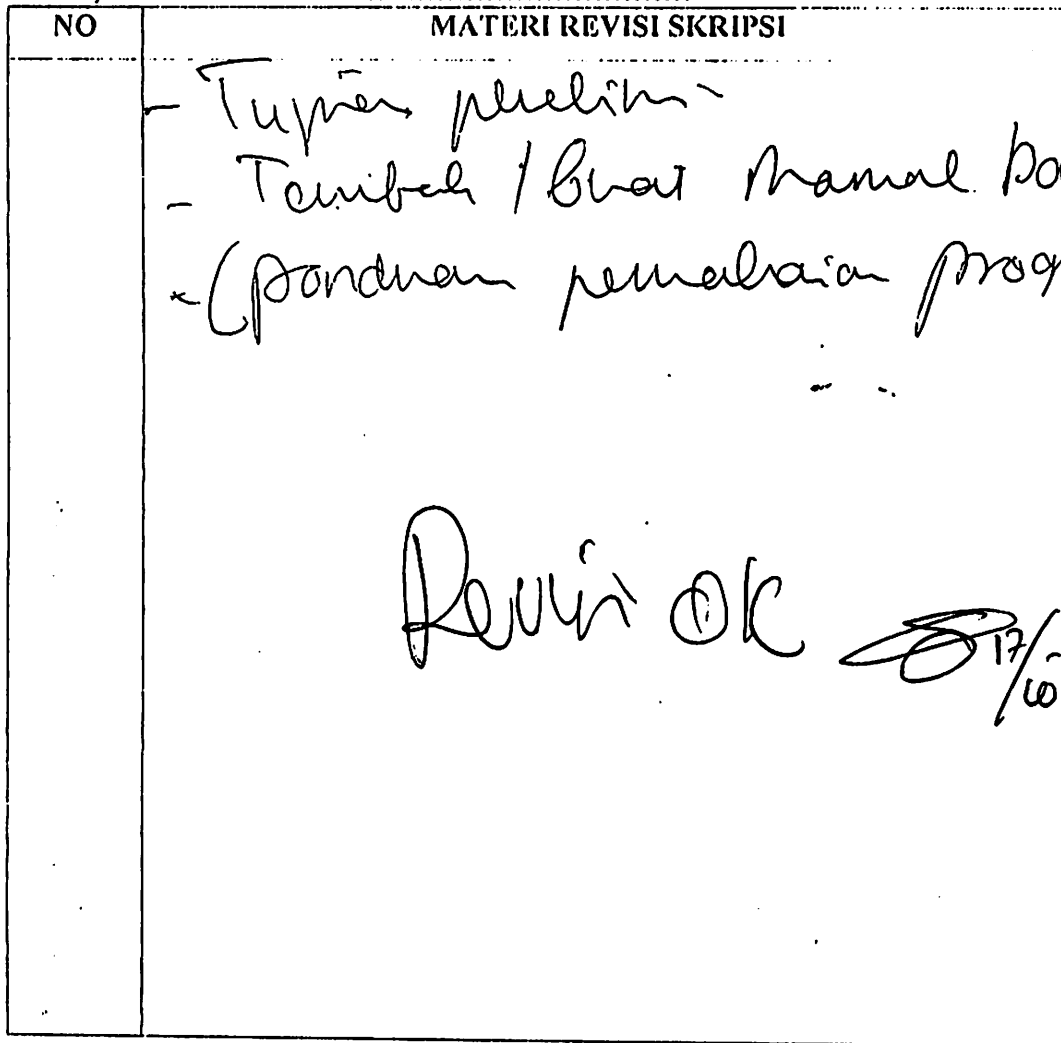 NO MATERI REVISI SKRIPSI
- Tujuan penelitian
- Tambah / buat manual bo
- (panduan pemakaian prog
Revisi OK 17/10